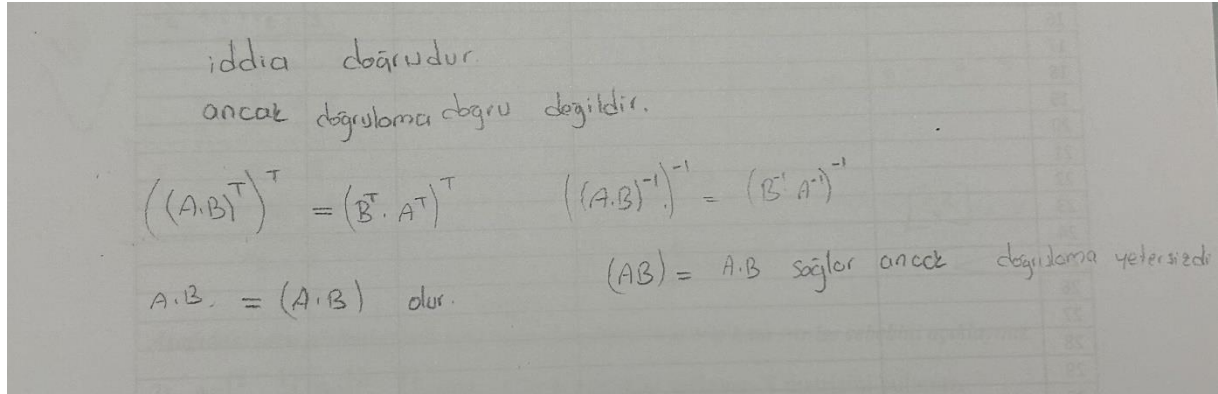 iddia doğrudur.
ancak doğrulama doğru değildir.
((A.B)^T)^T = (B^T . A^T)^T
A.B. = (A.B) olur.
((A.B)^-1.)^-1 = (B^-1 A^-1)^-1
(AB) = A.B sağlar ancak doğrulama yetersizdi